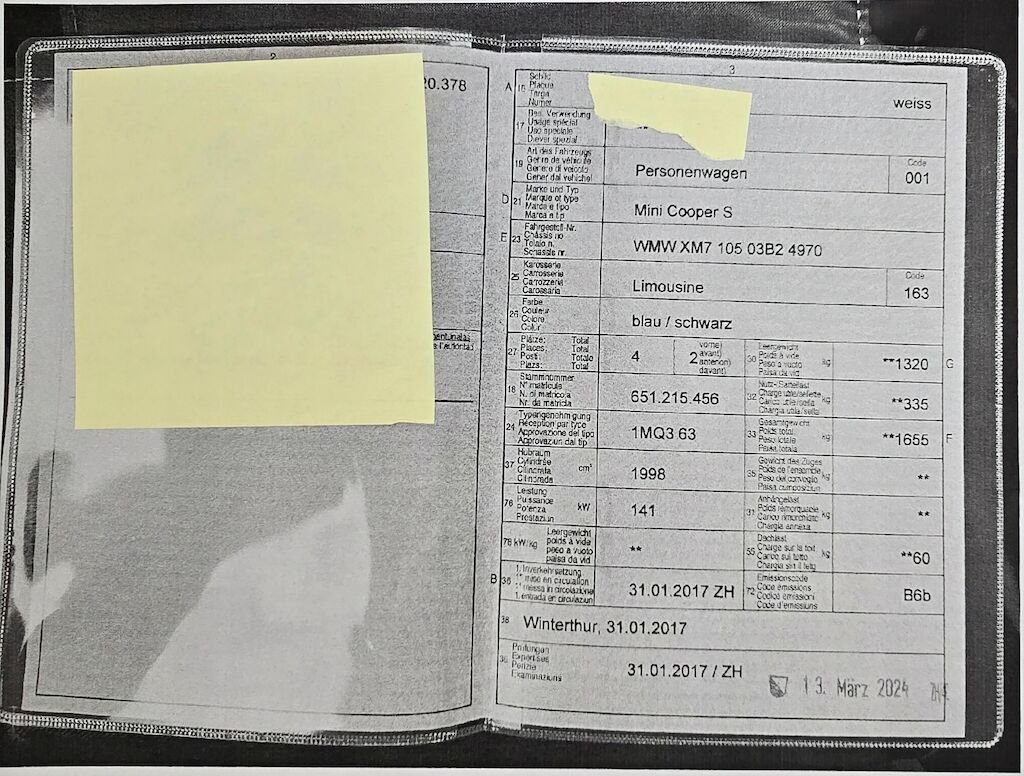 2
20.378
3
A 15 Schild
Plaque
Targa
Numer
weiss
17 Bes. Verwendung
Usage spécial
Uso speciale
Diever spezial
**
19 Art des Fahrzeugs
Genre de véhicule
Genere di veicolo
Gener dal vehichel
Personenwagen
Code
001
D 21 Marke und Typ
Marque et type
Marca e tipo
Marca e tip
Mini Cooper S
E 23 Fahrgestell-Nr.
Châssis no
Telaio n.
Schassis nr.
WMW XM7 105 03B2 4970
25 Karosserie
Carrosserie
Carrozzeria
Carossaria
Limousine
Code
163
26 Farbe
Couleur
Colore
Colur
blau / schwarz
27 Plätze: Total
Places: Total
Posti: Totale
Plazs: Total
4
2 vorne)
avant)
anteriori)
davant)
30 Leergewicht
Poids à vide
Peso a vuoto
Paisa da vid
kg
**1320 G
18 Stammnummer
N° matricule
N. di matricola
Nr. da matricla
651.215.456
32 Nutz-/Sattellast
Charge utile/sellette
Carico utile/sella
Chargia utila/sella
kg
**335
24 Typengenehmigung
Réception par type
Approvazione del tipo
Approvaziun dal tip
1MQ3 63
33 Gesamtgewicht
Poids total
Peso totale
Paisa totala
kg
**1655 F
37 Hubraum
Cylindrée
Cilindrata
Cilindrada
cm³
1998
35 Gewicht des Zuges
Poids de l'ensemble
Peso del convoglio
Paisa cumposiziun
kg
**
76 Leistung
Puissance
Potenza
Prestaziun
kW
141
31 Anhängelast
Poids remorquable
Carico rimorchiato
Chargia annexa
kg
**
78 kW/kg Leergewicht
poids à vide
peso a vuoto
paisa da vid
**
55 Dachlast
Charge sur le toit
Carico sul tetto
Chargia sin il tetg
kg
**60
B 36 1. Inverkehrsetzung
1re mise en circulation
1a messa in circolazione
1. entrada en circulaziun
31.01.2017 ZH
72 Emissionscode
Code émissions
Codice emissioni
Code d'emissiuns
B6b
38 Winterthur, 31.01.2017
39 Prüfungen
Expertises
Perizie
Examinaziuns
31.01.2017 / ZH
13. März 2024